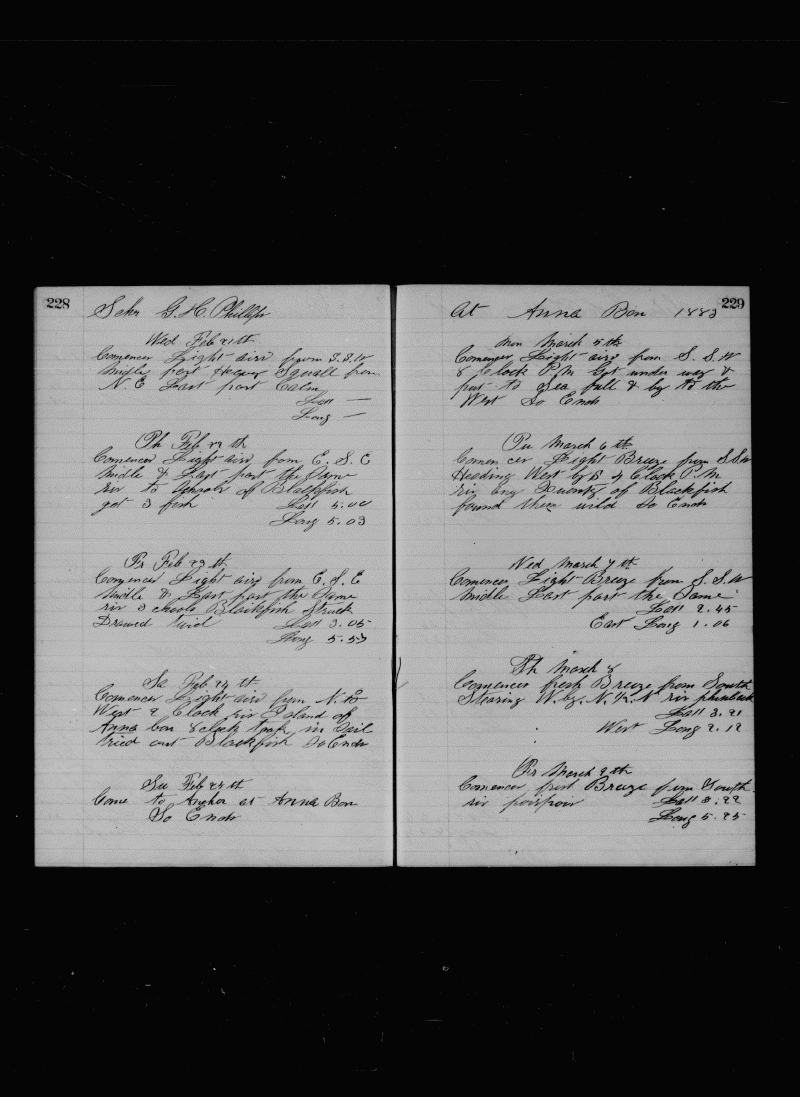 228
Schr G. H. Phillips
Wed Feb 21th
Comences Light airs from S.S.W
Middle part Heavy Squall from
N. E Last part Calm
Latt —
Long —
Th Feb 22 th
Comences Light airs from E. S. E
Middle & Last part the Same
of Blackfish
got 3 fish Latt 5.00
Long 5.03
Fr Feb 23 th
Comences Light airs from E. S. E
Middle & Last part the Same
Blackfish Struck
Drawed Latt 3.05
Long 5.53
Sa Feb 24 th
Comences Light airs from N. to
West 2 Clock Island of
Anna bon in Sail
tried out Blackfish So Ends
Su Feb 25 th
Came to Anchor at Anna Bon
So Ends
At Anna Bon 1883
229
Mon March 5 th
Comences Light airs from S. S. W
8 Clock P.M Got under way &
put to Sea full & by to the
West So Ends
Tu March 6 th
Comences Light Breeze from S.S.W
Heading West by 4 Clock P.M
of Blackfish
found them wild So Ends
Wed March 7 th
Comences Light Breeze from S. S. W
Middle Last part the Same
Latt 2.45
East Long 1.06
Th March 8
Comences fresh Breeze from South
Stearing W. by. N. 1/2. N
Latt 3.21
West Long 2.12
Fr March 9 th
Comences Breeze from South
Latt 3.22
Long 5.25